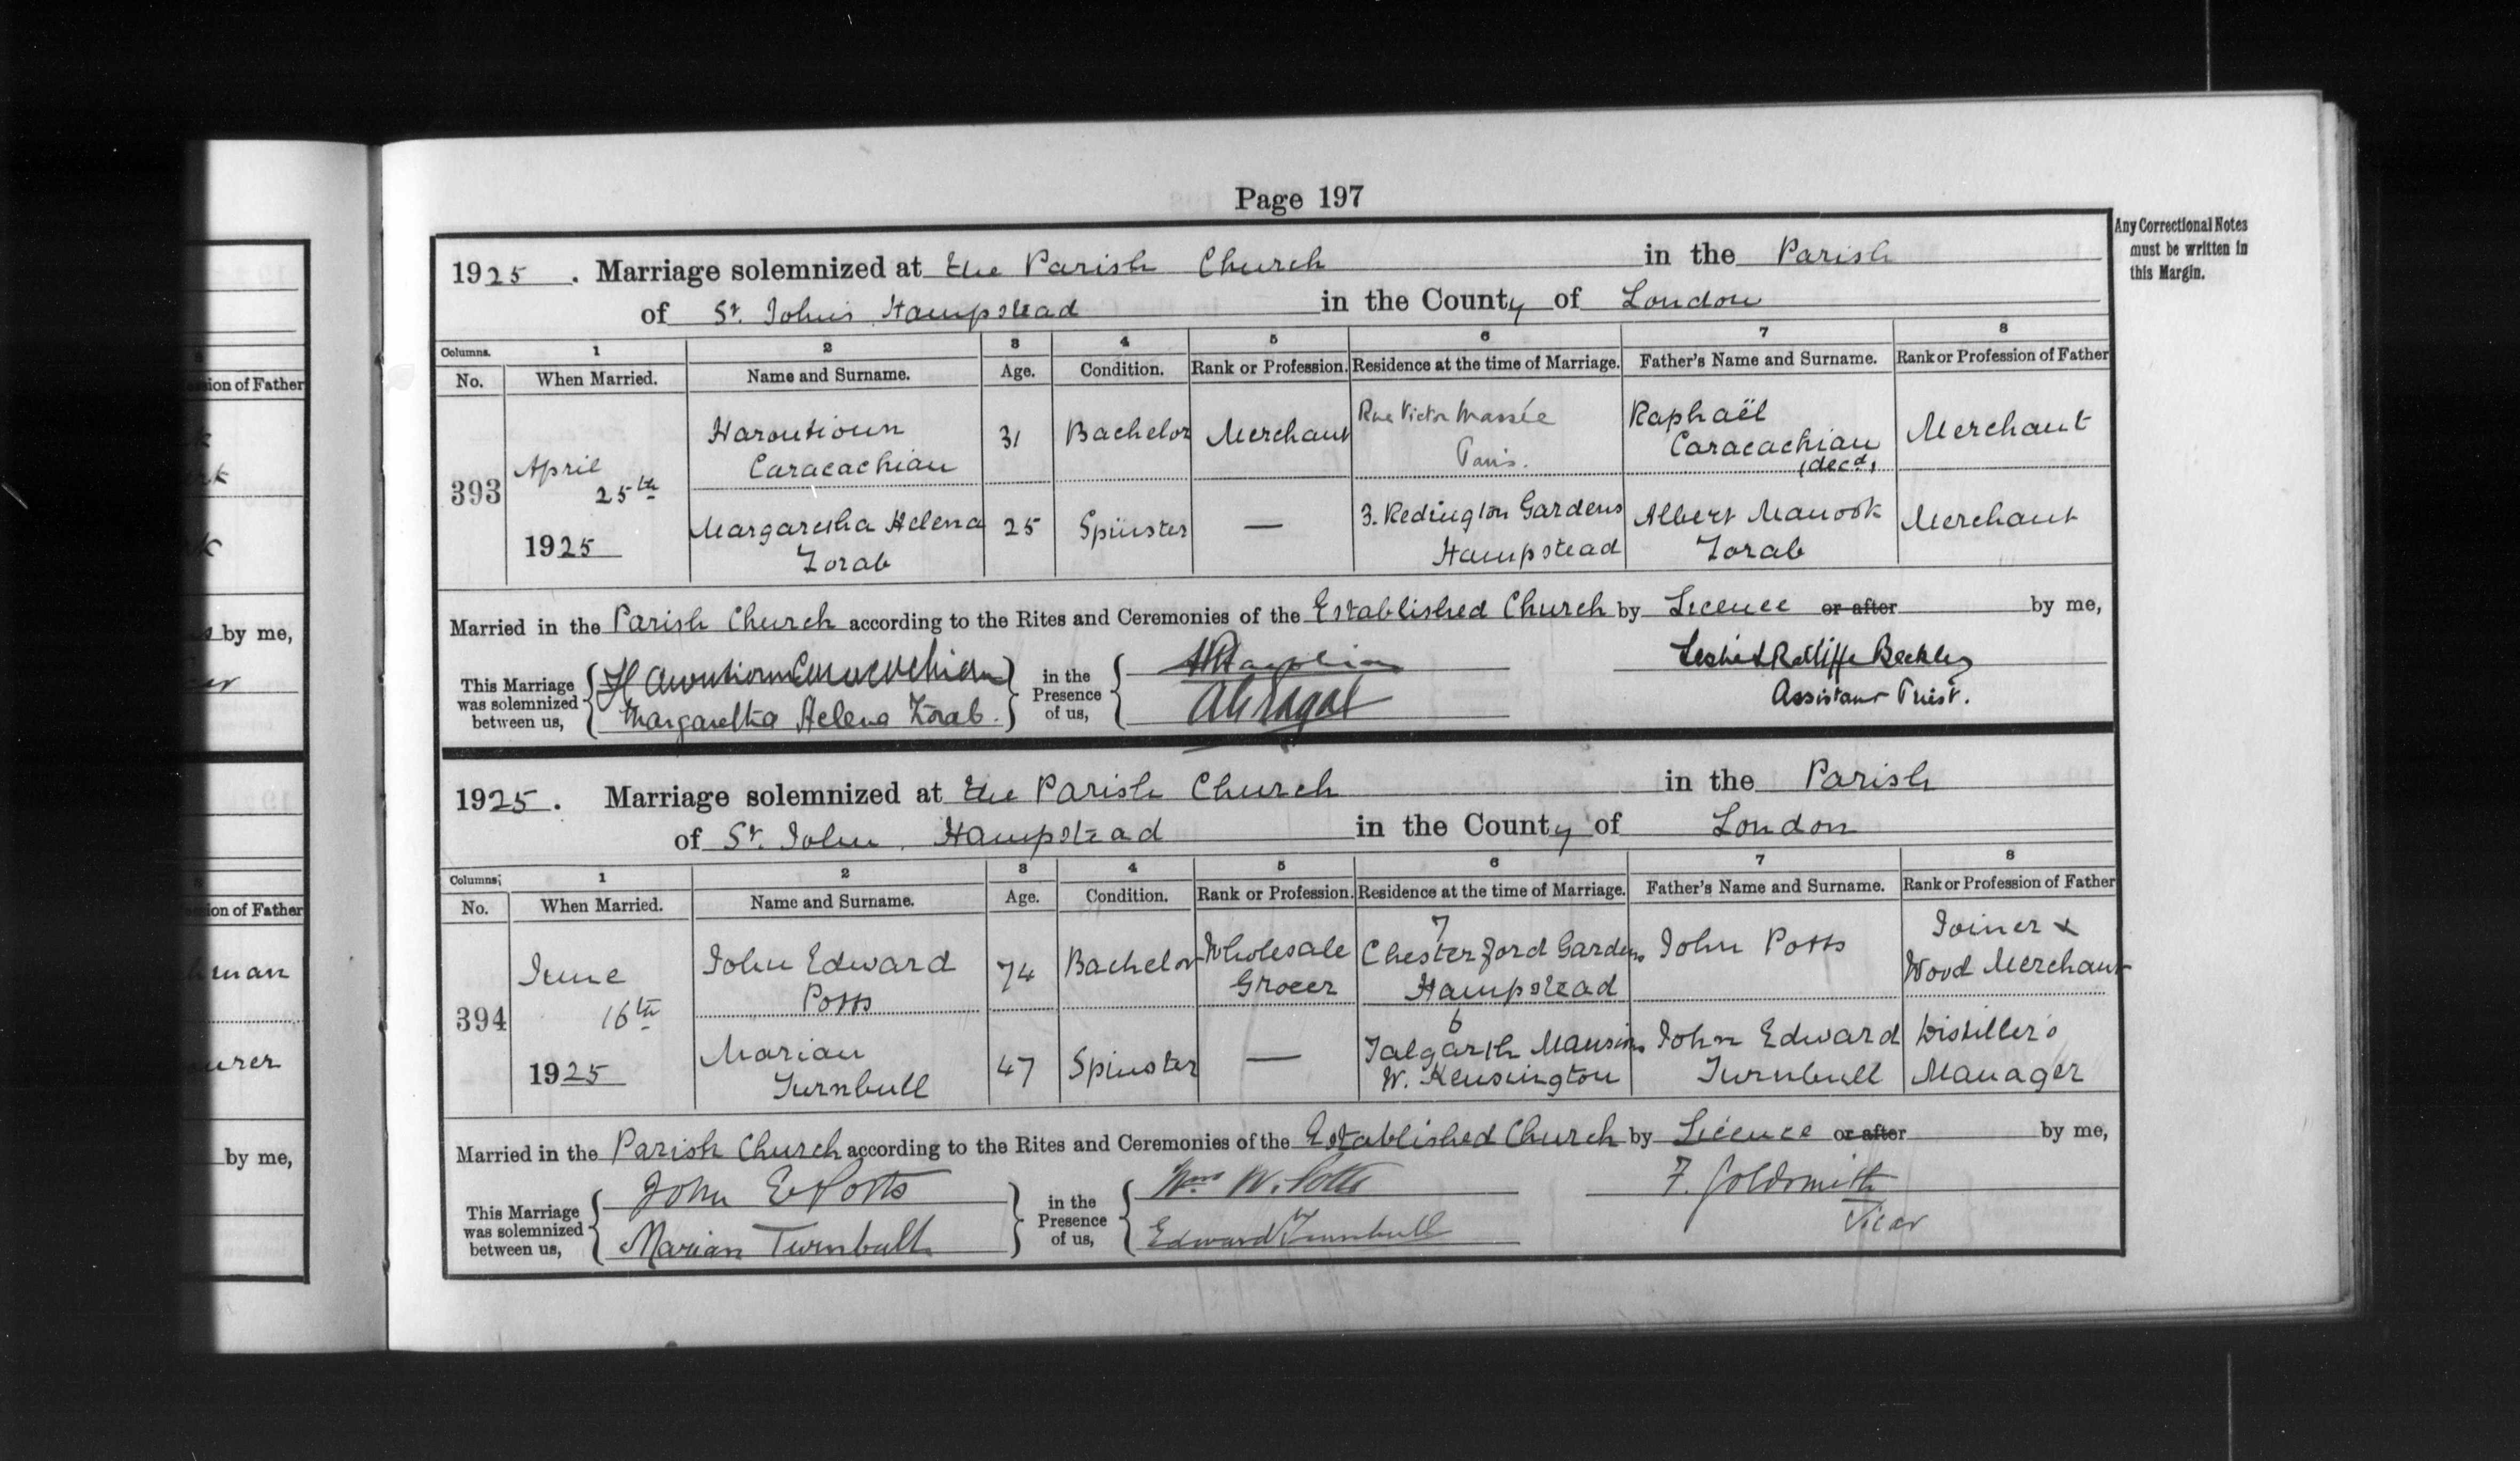 Page 197
Any Correctional Notes
must be written in
this Margin.
1925. Marriage solemnized at the Parish Church in the Parish
of St. John's Hampstead in the County of London
Columns. 1 2 3 4 5 6 7 8
No. When Married. Name and Surname. Age. Condition. Rank or Profession. Residence at the time of Marriage. Father's Name and Surname. Rank or Profession of Father
393 April 25th 1925
Haroutioun Caracachian 31 Bachelor Merchant Rue Victor Massée Paris. Raphaël Caracachian (decd) Merchant
Margaretha Helena Zorab 25 Spinster — 3. Redington Gardens Hampstead Albert Manook Zorab Merchant
Married in the Parish Church according to the Rites and Ceremonies of the Established Church by Licence or after by me,
This Marriage was solemnized between us,
Haroutioun Caracachian
Margaretha Helena Zorab.
in the Presence of us,
Leslie Ratliffe Beckley
Assistant Priest.
1925. Marriage solemnized at the Parish Church in the Parish
of St. John, Hampstead in the County of London
Columns; 1 2 3 4 5 6 7 8
No. When Married. Name and Surname. Age. Condition. Rank or Profession. Residence at the time of Marriage. Father's Name and Surname. Rank or Profession of Father
394 June 16th 1925
John Edward Potts 74 Bachelor Wholesale Grocer 7 Chesterford Gardens Hampstead John Potts Joiner & Wood Merchant
Marian Turnbull 47 Spinster — 6 Talgarth Mansions W. Kensington John Edward Turnbull Distiller's Manager
Married in the Parish Church according to the Rites and Ceremonies of the Established Church by Licence or after by me,
This Marriage was solemnized between us,
John E Potts
Marian Turnbull
in the Presence of us,
Wm W. Potts
Edward Turnbull
F. Goldsmith
Vicar
ion of Father
by me,
ion of Father
by me,